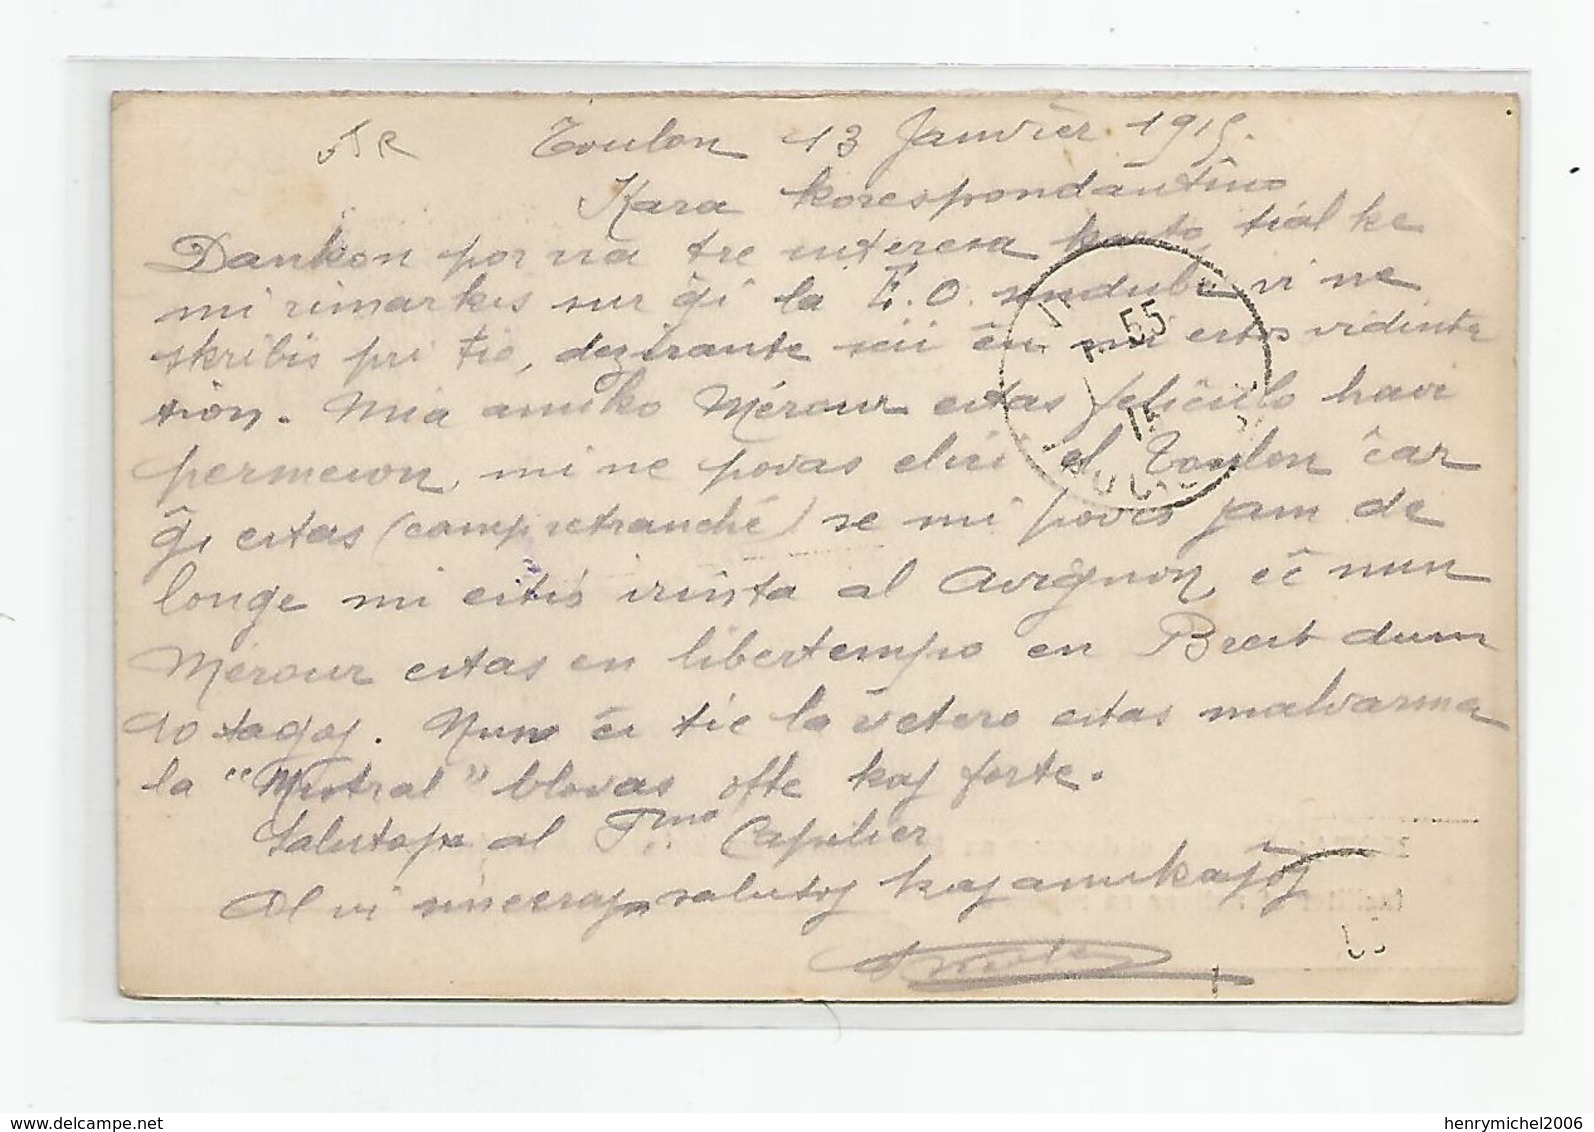 Toulon 13 Janvier 1915.
Kara korespondantino
Dankon por via tre interesa karto, tial ke
mi rimarkis sur ĝi la E.O. sendube vi ne
skribis pri tio, dezirante scii ĉu mi estos vidinta
tion. Mia amiko Mérour estas feliĉulo havi
permeson, mi ne povas eliri el Toulon ĉar
ĝi estas (camp retranché) se mi povis jam de
longe mi estis irinta al Avignon, ĉe nun
Mérour estas en libertempo en Brest dum
10 tagoj. Nun ĉi tie la vetero estas malvarma
la "Mistral" blovas ofte kaj forte.
Salutojn al Fino Capelier
Al vi sincerajn salutoj kaj amikajoj
55
15
delcampe.net
henrymichel2006